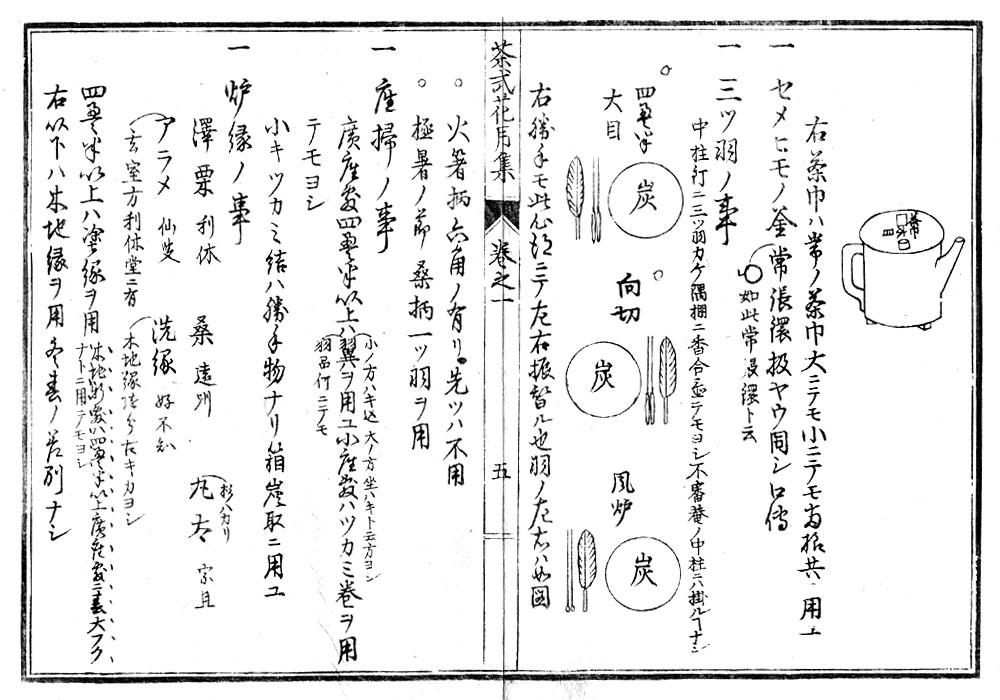 右茶巾ハ常ノ茶巾大ニテモ小ニテモ
一 セメヒモノ釜常張鐶扱ヤウ同シ口傳
如此常張鐶ト云
一 三ツ羽ノ事
中柱釘ニ三ツ羽カケ隅棚ニ香合 テモヨシ不審菴ノ中柱ニハ掛ルヿナシ
四畳半
大目
炭
向切
炭
風炉
炭
右勝手モ此心 ニテ左右振替ル也羽ノ左右ハ如図
茶式花月集
卷之一
五
。火箸柄六角ノ有リ先ツハ不用
。極暑ノ節桑柄一ツ羽ヲ用
一 座掃ノ事
小ノ方ハキ込大ノ方坐ハキト云方ヨシ
廣座敷四畳半以上ハ翼ヲ用ユ小座敷ハツカミ巻ヲ用
羽 何ニテモ
テモヨシ
小キツカミ結ハ勝手物ナリ箱炭取ニ用ユ
一 炉縁ノ事
澤栗 利休
桑 遠州
丸太 宗旦
杉ハカリ
アラメ 仙叟
洗縁 好不知
玄室方利休堂ニ有
木地縁 キカヨシ
四畳半以上ハ塗縁ヲ用
木地 四畳半以上廣座敷ニ
ナトニ用テモヨシ
右以下ハ木地縁ヲ用冬春ノ差別ナシ